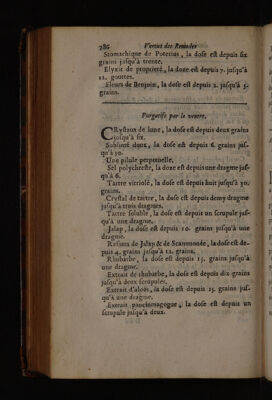 286 Vertus des Remedes
Stomachique de Poterius, la dose est depuis six
grains jusqu'à trente.
Elyxir de proprieté, la doze est depuis 7. jusqu'à
12. gouttes.
Fleurs de Benjoin, la dose est depuis 2. jusqu'à 5.
grains.
Purgatifs par le ventre.
CRystaux de lune, la dose est depuis deux grains
jusqu'à six.
Sublimé doux, la dose est depuis 6. grains jus-
qu'à 30.
Une pilule perpetuelle.
Sel polychreste, la doze est depuis une dragme jus-
qu'à 6.
Tartre vitriolé, la dose est depuis huit jusqu'à 30.
grains.
Crystal de tartre, la dose est depuis demy dragme
jusqu'à trois dragmes.
Tartre soluble, la dose est depuis un scrupule jus-
qu'à une dragme.
Jalap, la dose est depuis 10. grains jusqu'à une
dragme.
Rasines de Jalap & de Scammonée, la dose est de-
puis 4. grains jusqu'à 12. grains.
Rhubarbe, la dose est depuis 15. grains jusqu'à
une dragme.
Extrait de rhubarbe, la dose est depuis dix grains
jusqu'à deux scrupules.
Extrait d'aloës, la dose est depuis 15. grains jus-
qu'à une dragme.
Extrait panchimagogue, la dose est depuis un
scrupule jusqu'à deux.